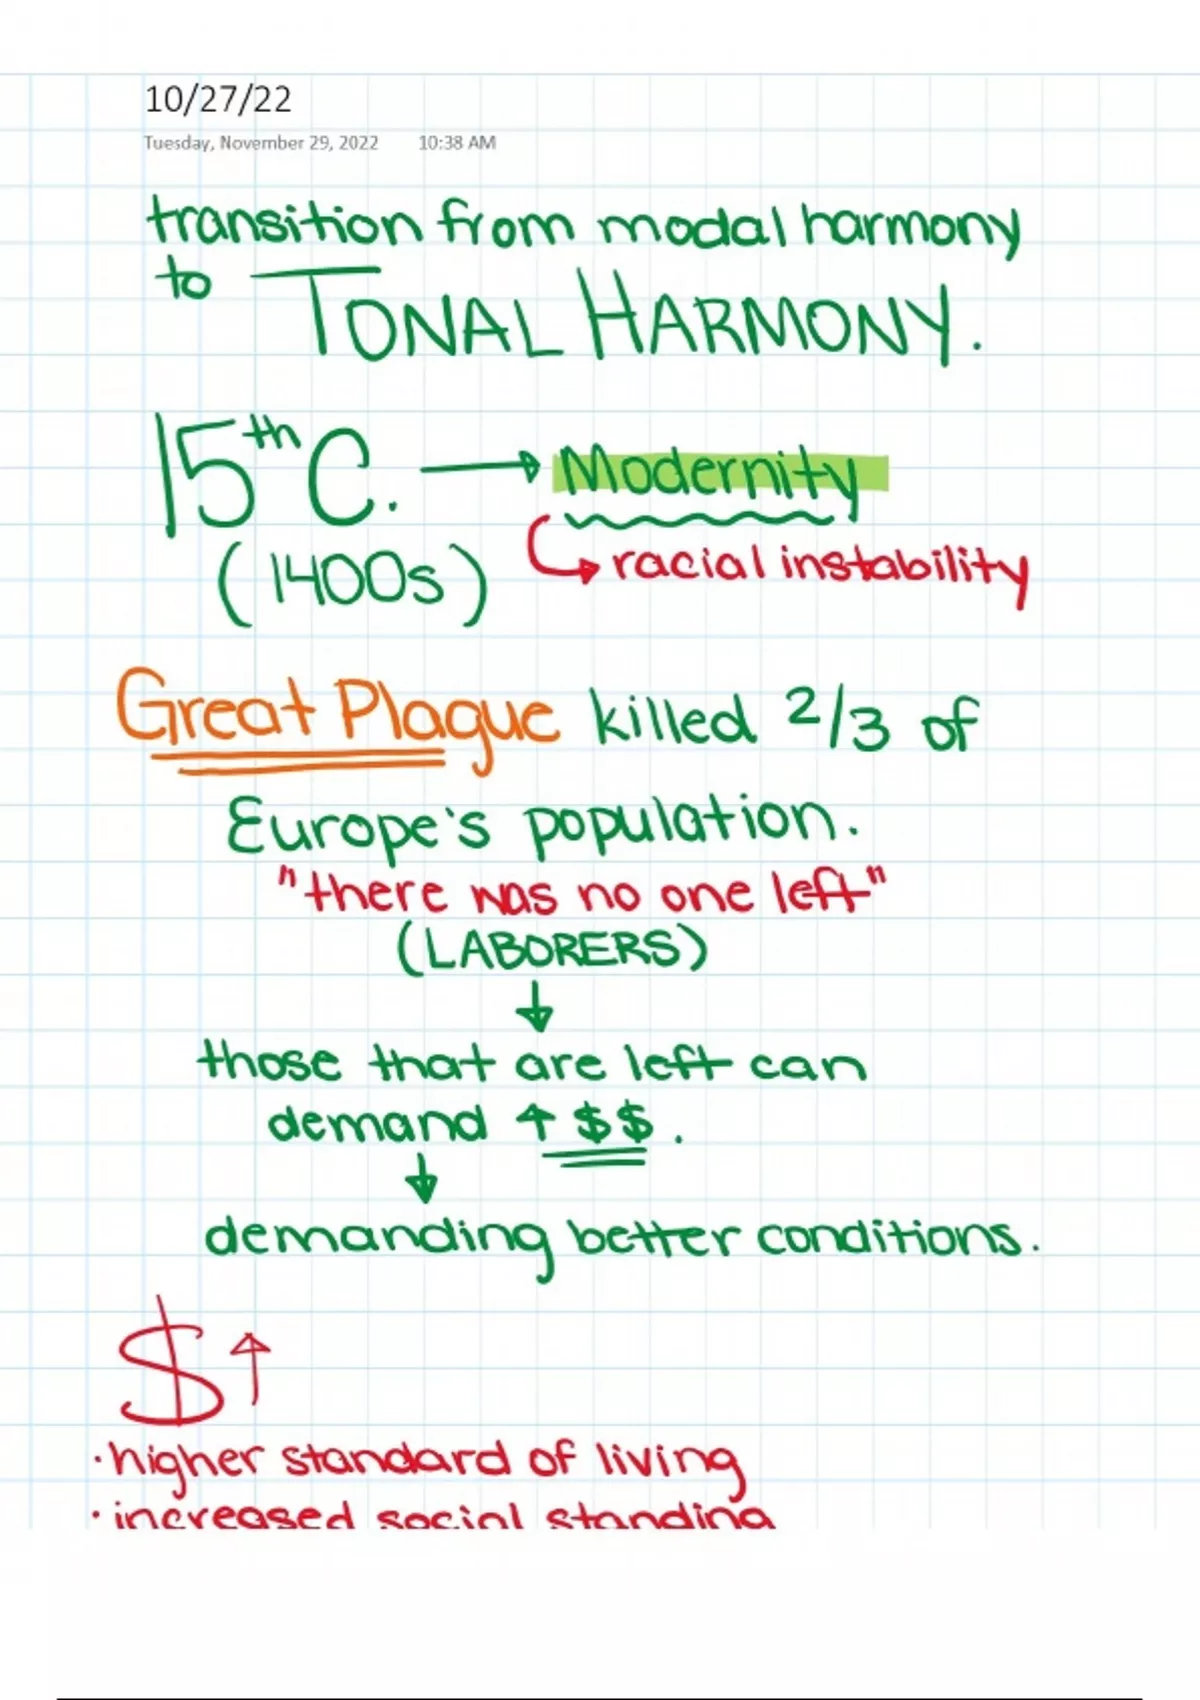 10/27/22
Tuesday, November 29, 2022 10:38 AM
transition from modal harmony
to TONAL HARMONY.
15th C. → Modernity
(1400s) ↳ racial instability
Great Plague killed 2/3 of
Europe's population.
"there was no one left"
(LABORERS)
↓
those that are left can
demand ↑ $$.
↓
demanding better conditions.
$↑
· higher standard of living
· increased social standing